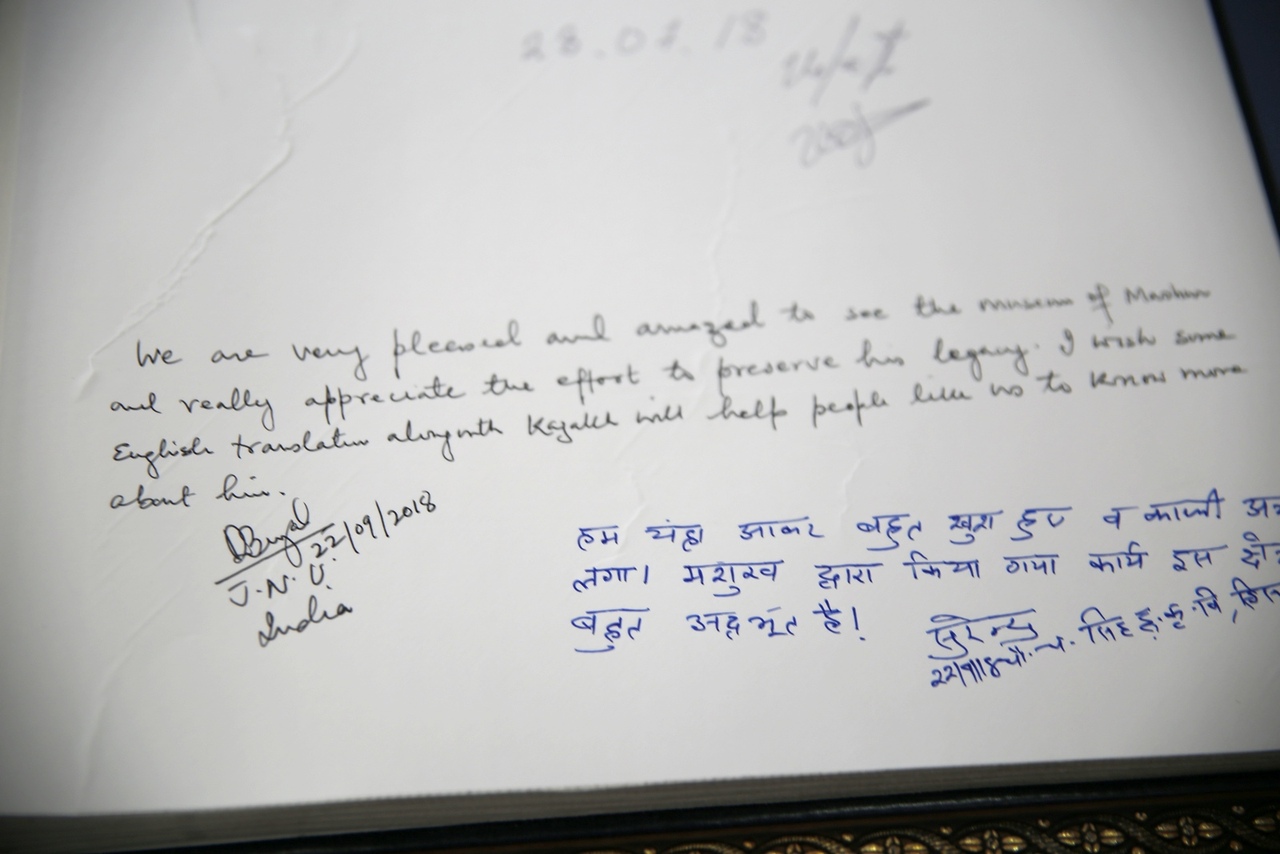 28.02.18
We are very pleased and amazed to see the museum of Mashur
and really appreciate the effort to preserve his legacy. I wish some
English translation alongwith Kazakh will help people like us to know more
about him.
22/09/2018
J.N.U.
India
हम यंहा आकर बहुत खुश हुए व काफी
लगा। मशुरव द्वारा किया गया कार्य इस
बहुत अद्रभूत है!
सुरेन्द्र
22/9/18 चौ. च. सिंह ह. कृ. वि,